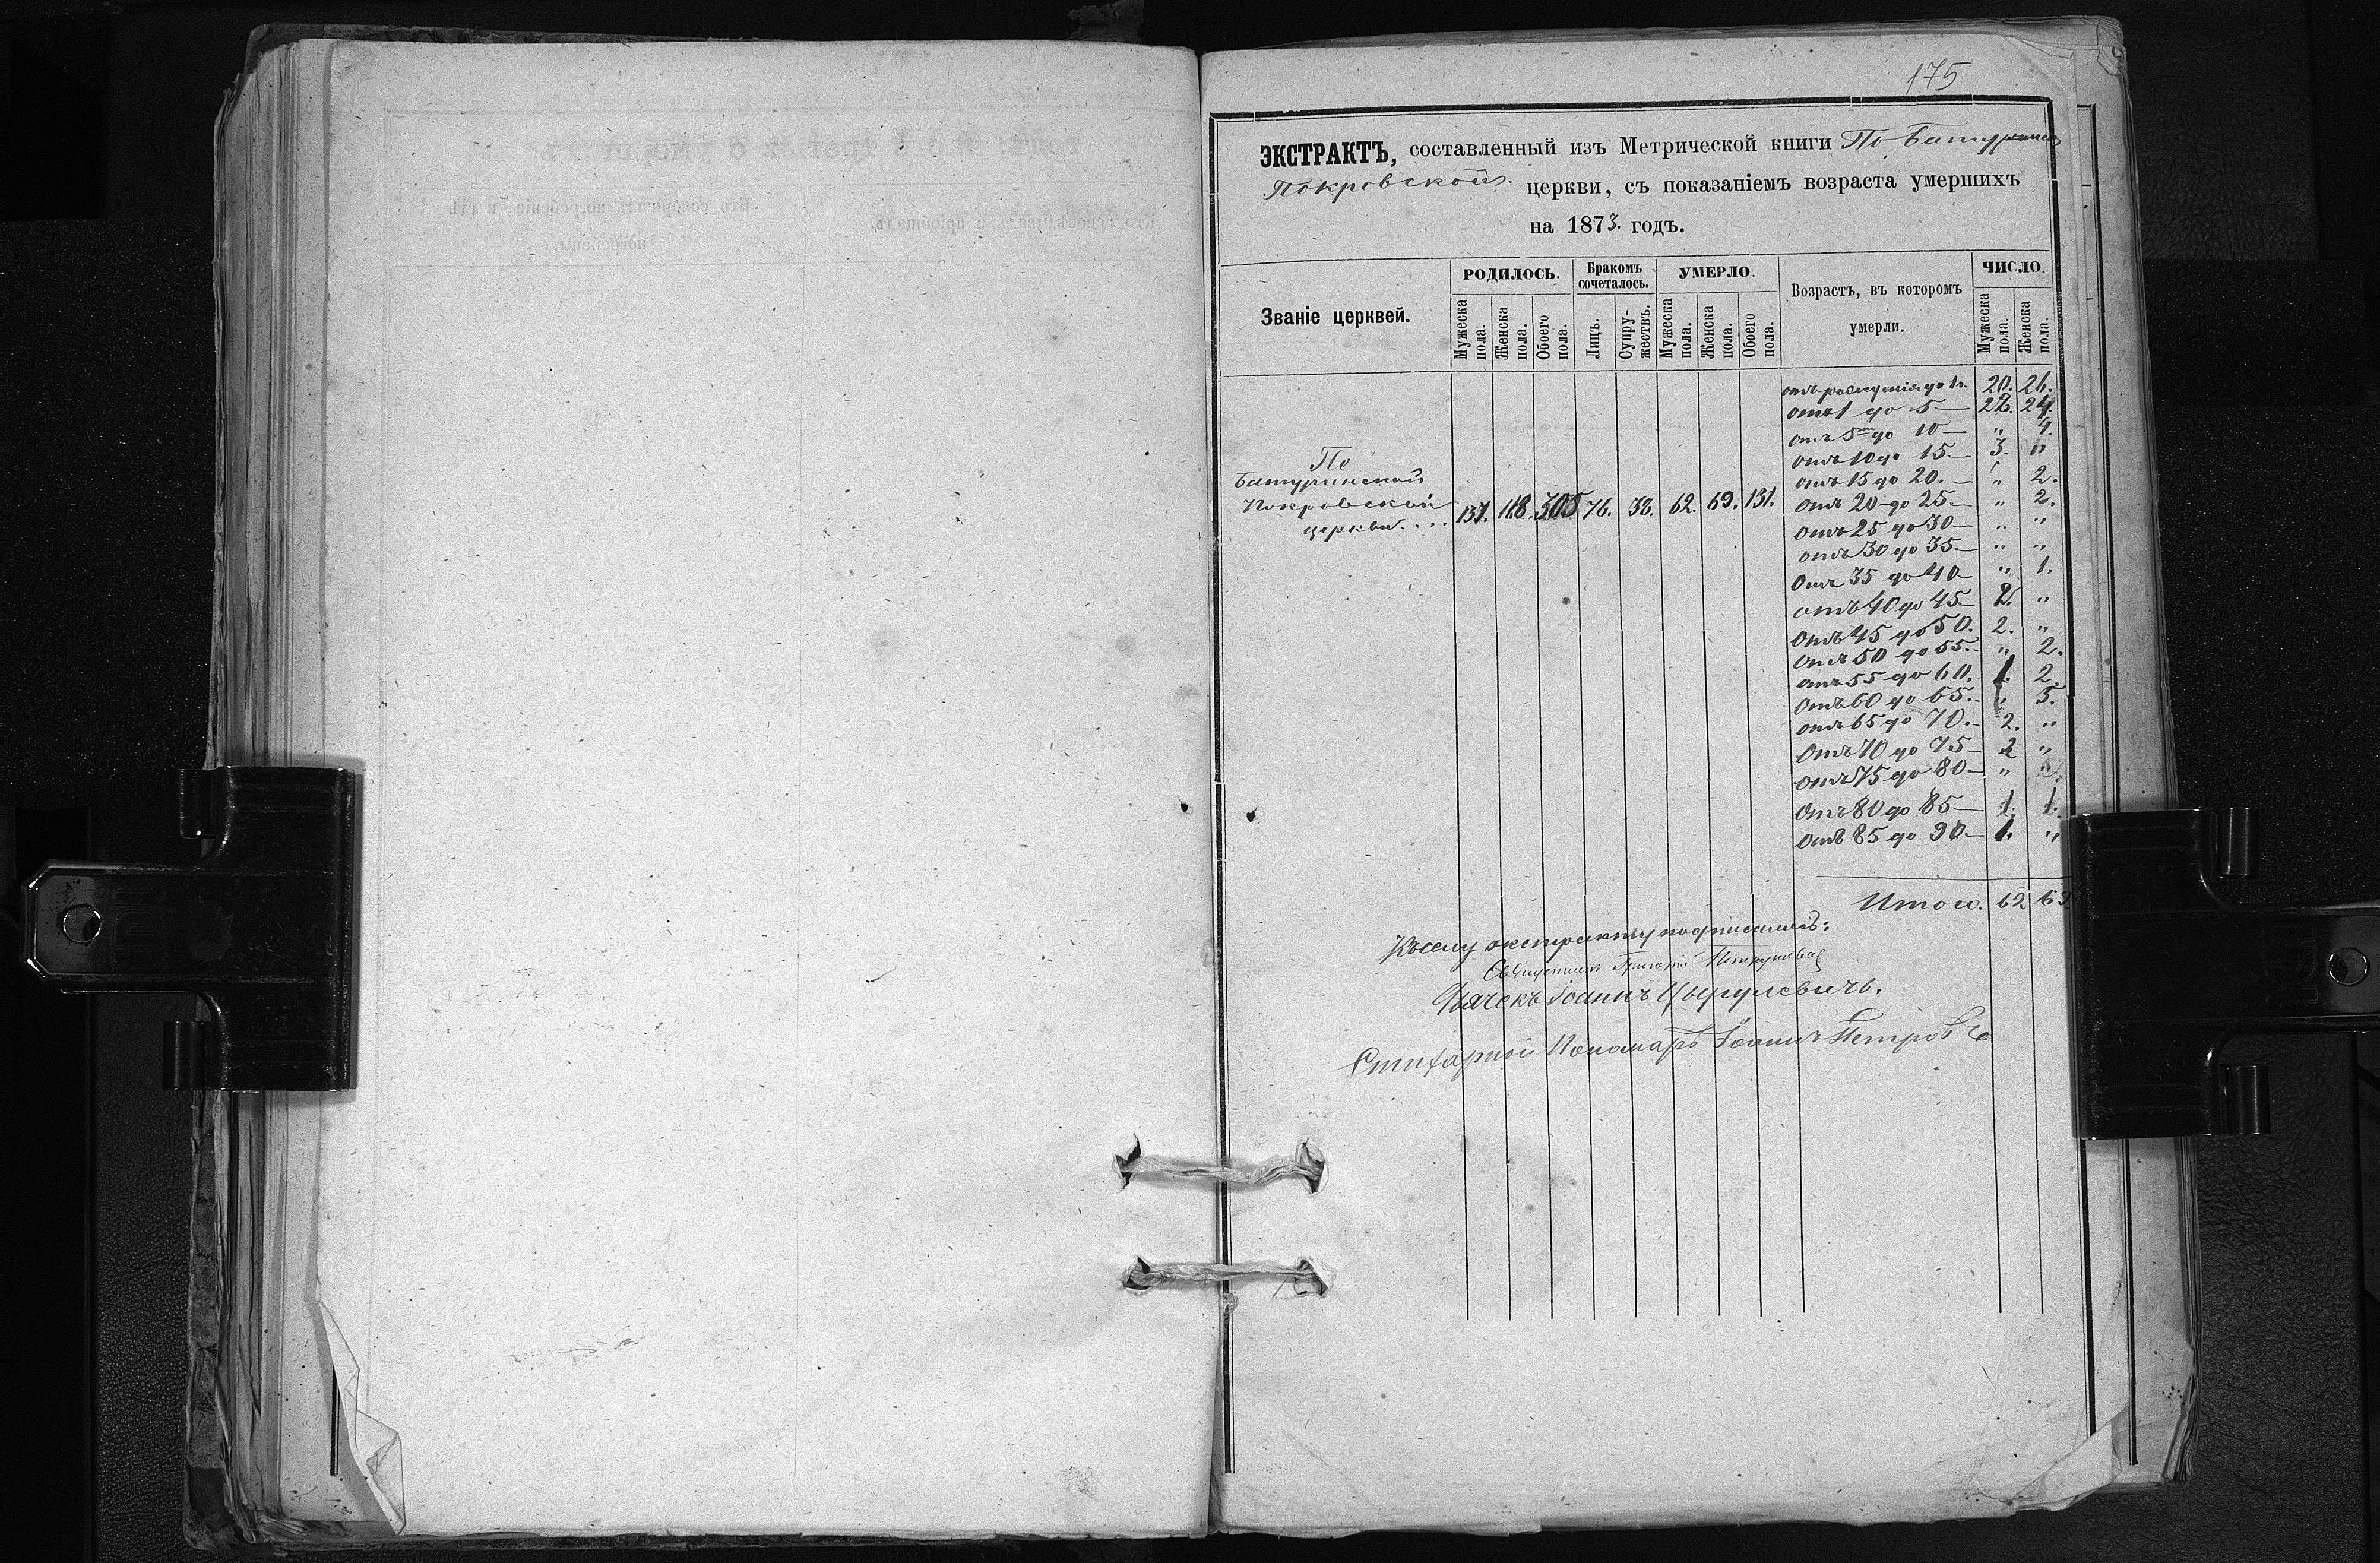 175
ЭКСТРАКТЪ, составленный изъ Метрической книги По Батуринс
Покровской церкви, съ показаніемъ возраста умершихъ
на 1873. годъ.
Званіе церквей. РОДИЛОСЬ. Бракомъ сочеталось. УМЕРЛО. Возрастъ, въ которомъ умерли. ЧИСЛО.
Мужеска пола. Женска пола. Обоего пола. Лицъ. Супружествъ. Мужеска пола. Женска пола. Обоего пола. Мужеска пола. Женска пола.
отъ рожденія до 1г. 20. 26.
отъ 1 до 5— 28. 24.
отъ 5ти до 10— " 4.
отъ 10 до 15— 3. "
отъ 15 до 20.— " 2.
По
Батуринской
Покровской
церкви.... 137. 168. 305 76. 38. 62. 69. 131.
отъ 20 до 25— " 2.
отъ 25 до 30— " "
отъ 30 до 35.— " "
отъ 35 до 40— " 1.
отъ 40 до 45— 2. "
отъ 45 до 50. 2. "
отъ 50 до 55.— " 2.
отъ 55 до 60. 1. 2.
отъ 60 до 65.— " 5.
отъ 65 до 70.— 2. "
отъ 70 до 75— 2 "
отъ 75 до 80— "
отъ 80 до 85— 1. 1.
отъ 85 до 90— 1. "
Итого. 62 69.
Къ сему экстракту подписались:
Священникъ Григорій
Дьячекъ Іоаннъ Цырулевичъ.
Стихарной Пономарь Іоаннъ Петров